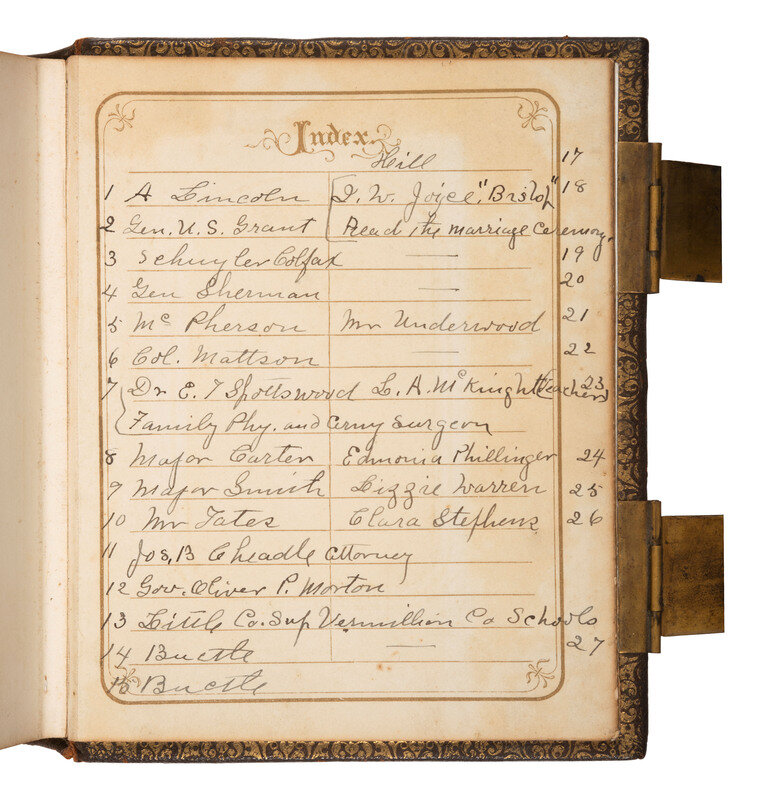 Index.
Hill 17
1 A Lincoln I. W. Joyce, "Bishop" 18
2 Gen. U. S. Grant Read the marriage Ceremony.
3 Schuyler Colfax — 19
4 Gen Sherman — 20
5 Mc Pherson Mr Underwood 21
6 Col. Mattson — 22
7 Dr E. T Spottswood L. A. McKnight (teachers) 23
Family Phy. and Army Surgeon
8 Major Carter Edmonia Phillinger 24
9 Major Smith Lizzie Warren 25
10 Mr Yates Clara Stephens 26
11 Jos, B Cheadle attorney
12 Gov. Oliver P. Morton
13 Little Co. Sup Vermillion Co Schools
14 Buctle — 27
15 Buctle